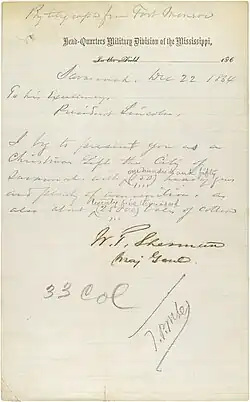 By telegraph from Fort Monroe
Head-Quarters Military Division of the Mississippi,
In the Field 186
Savannah, Dec 22 1864
To his Excellency,
President Lincoln.
I beg to present you as a
Christmas Gift the City of
one hundred and fifty
Savannah with (150) heavy guns
and plenty of ammunition. as
twenty five thousand
also about (25,000) bales of cotton
W. T. Sherman
Maj Genl.
33 Col